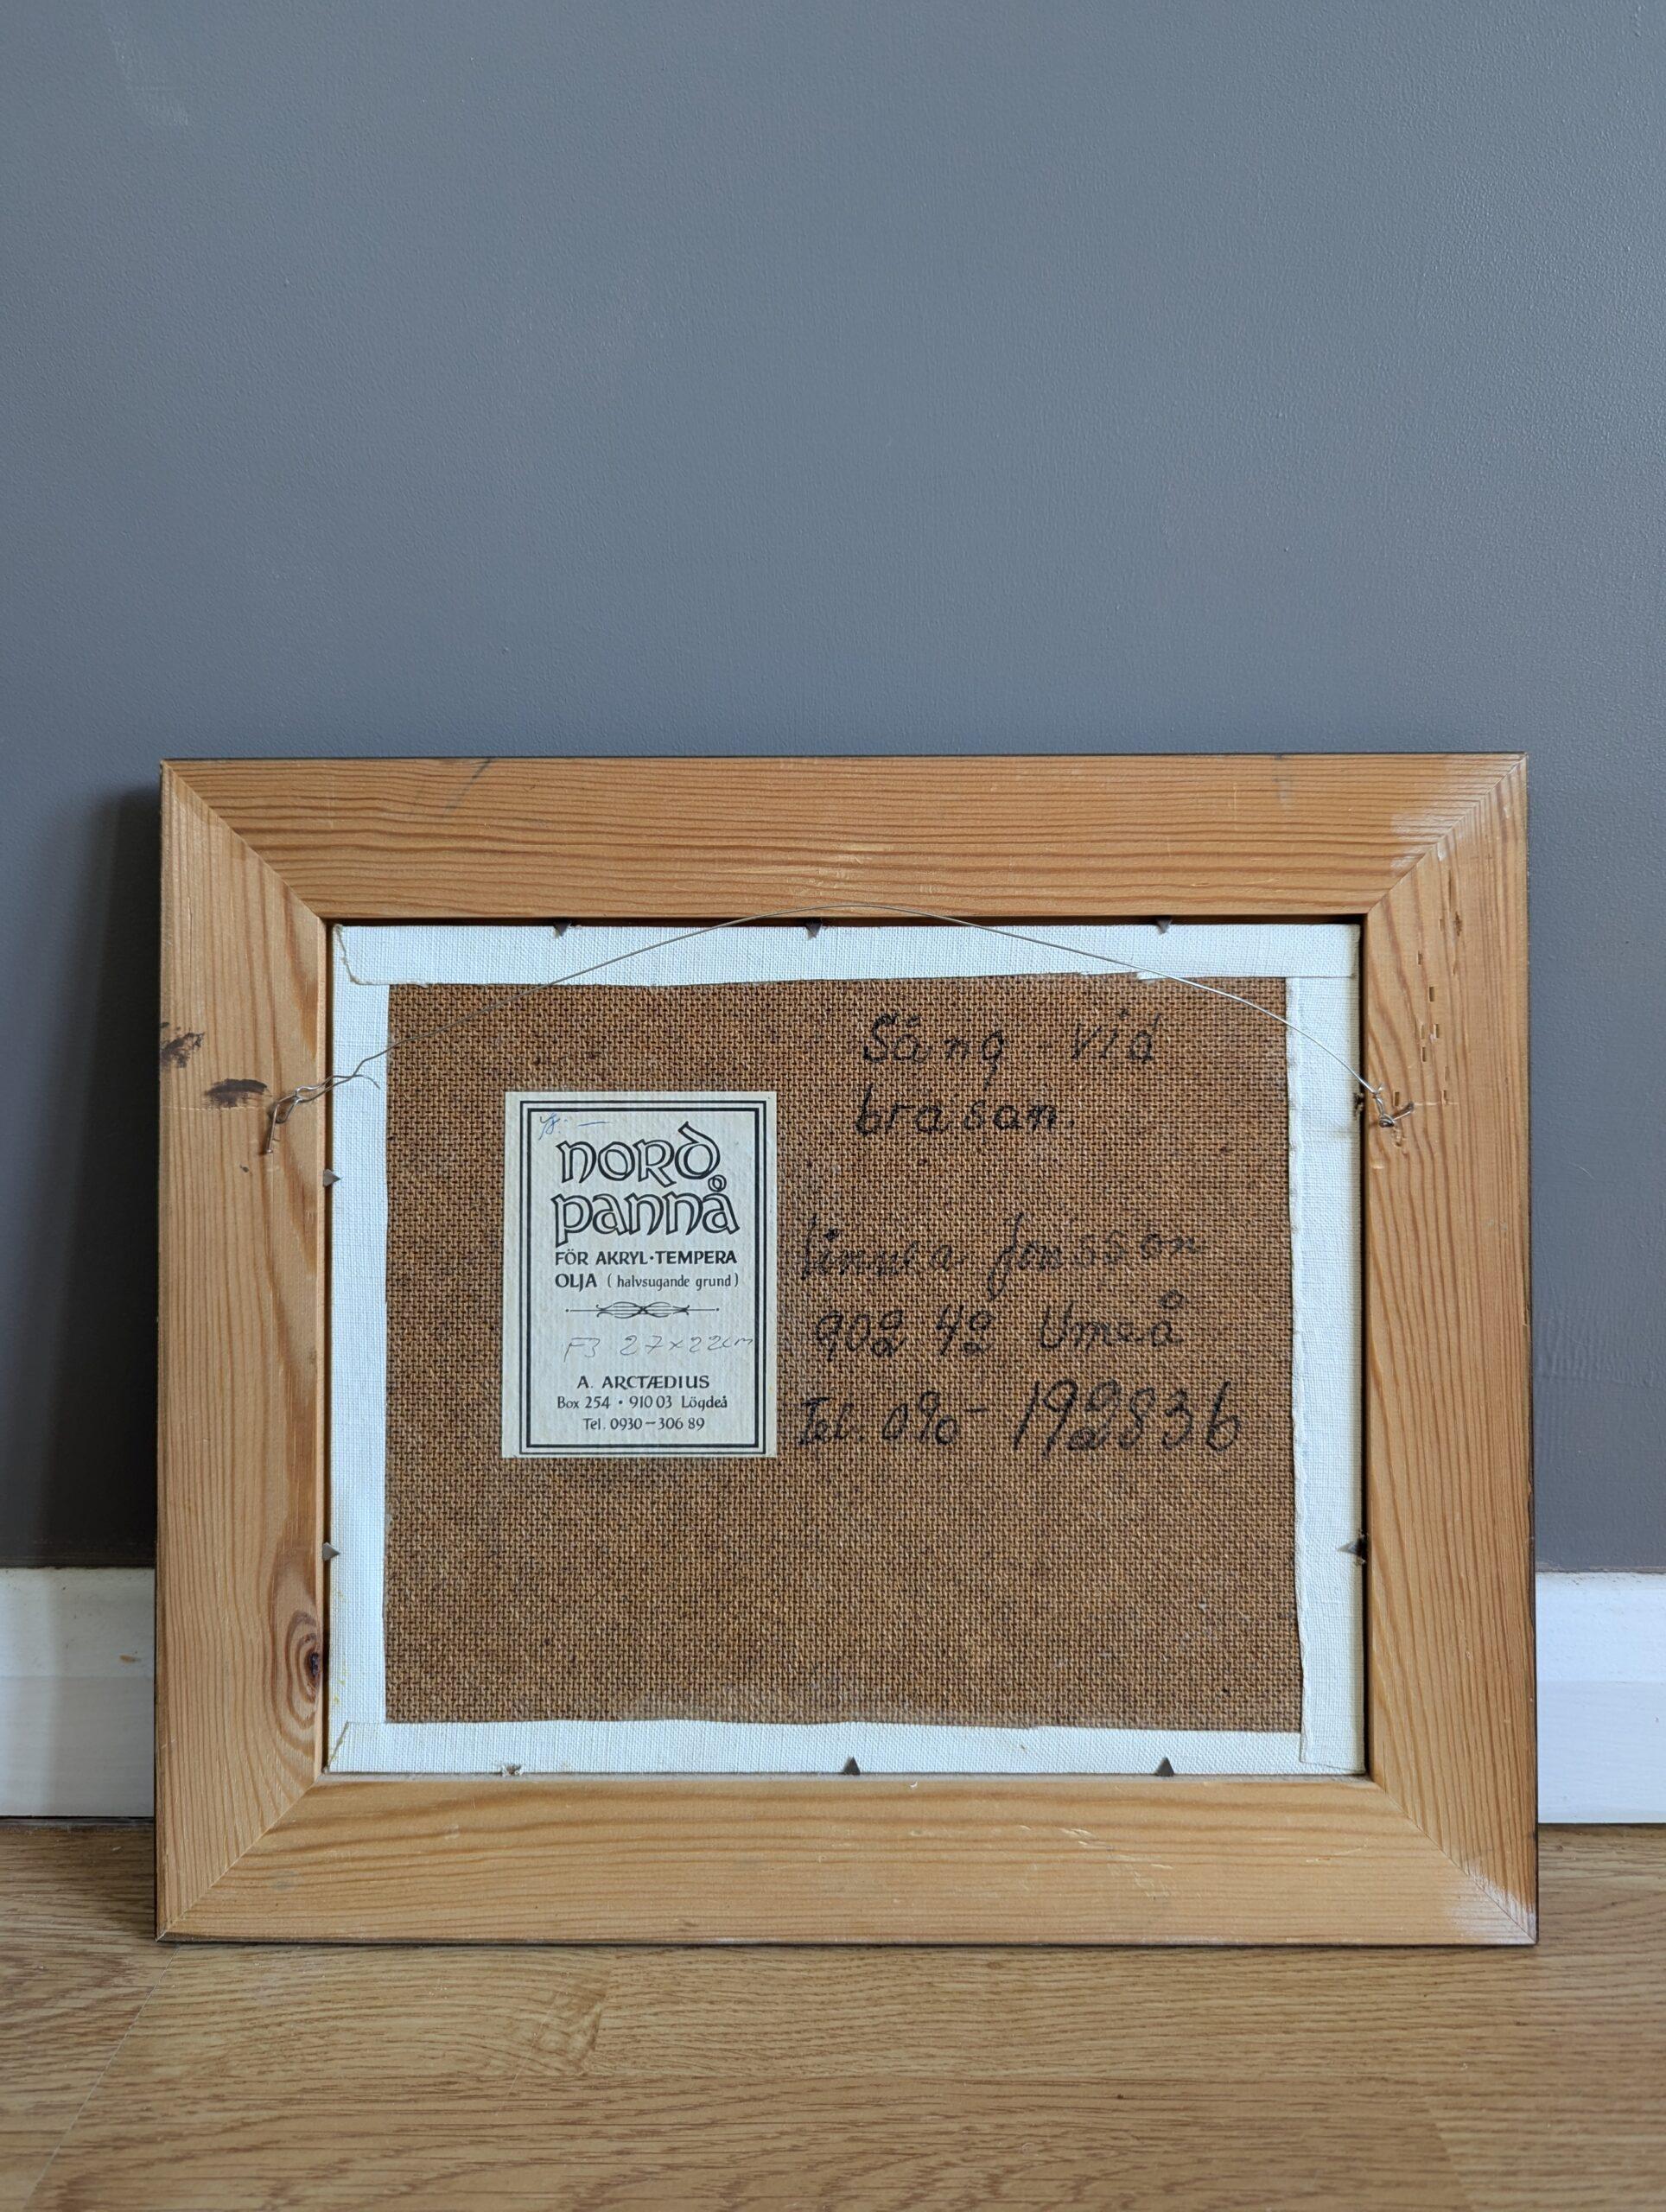 Sång vid
brasan.
nord
pannå
FÖR AKRYL·TEMPERA
OLJA (halvsugande grund)
F3 27x22cm
A. ARCTÆDIUS
Box 254 • 910 03 Lögdeå
Tel. 0930–306 89
Linnea Jonsson
902 42 Umeå
Tel. 090- 192836